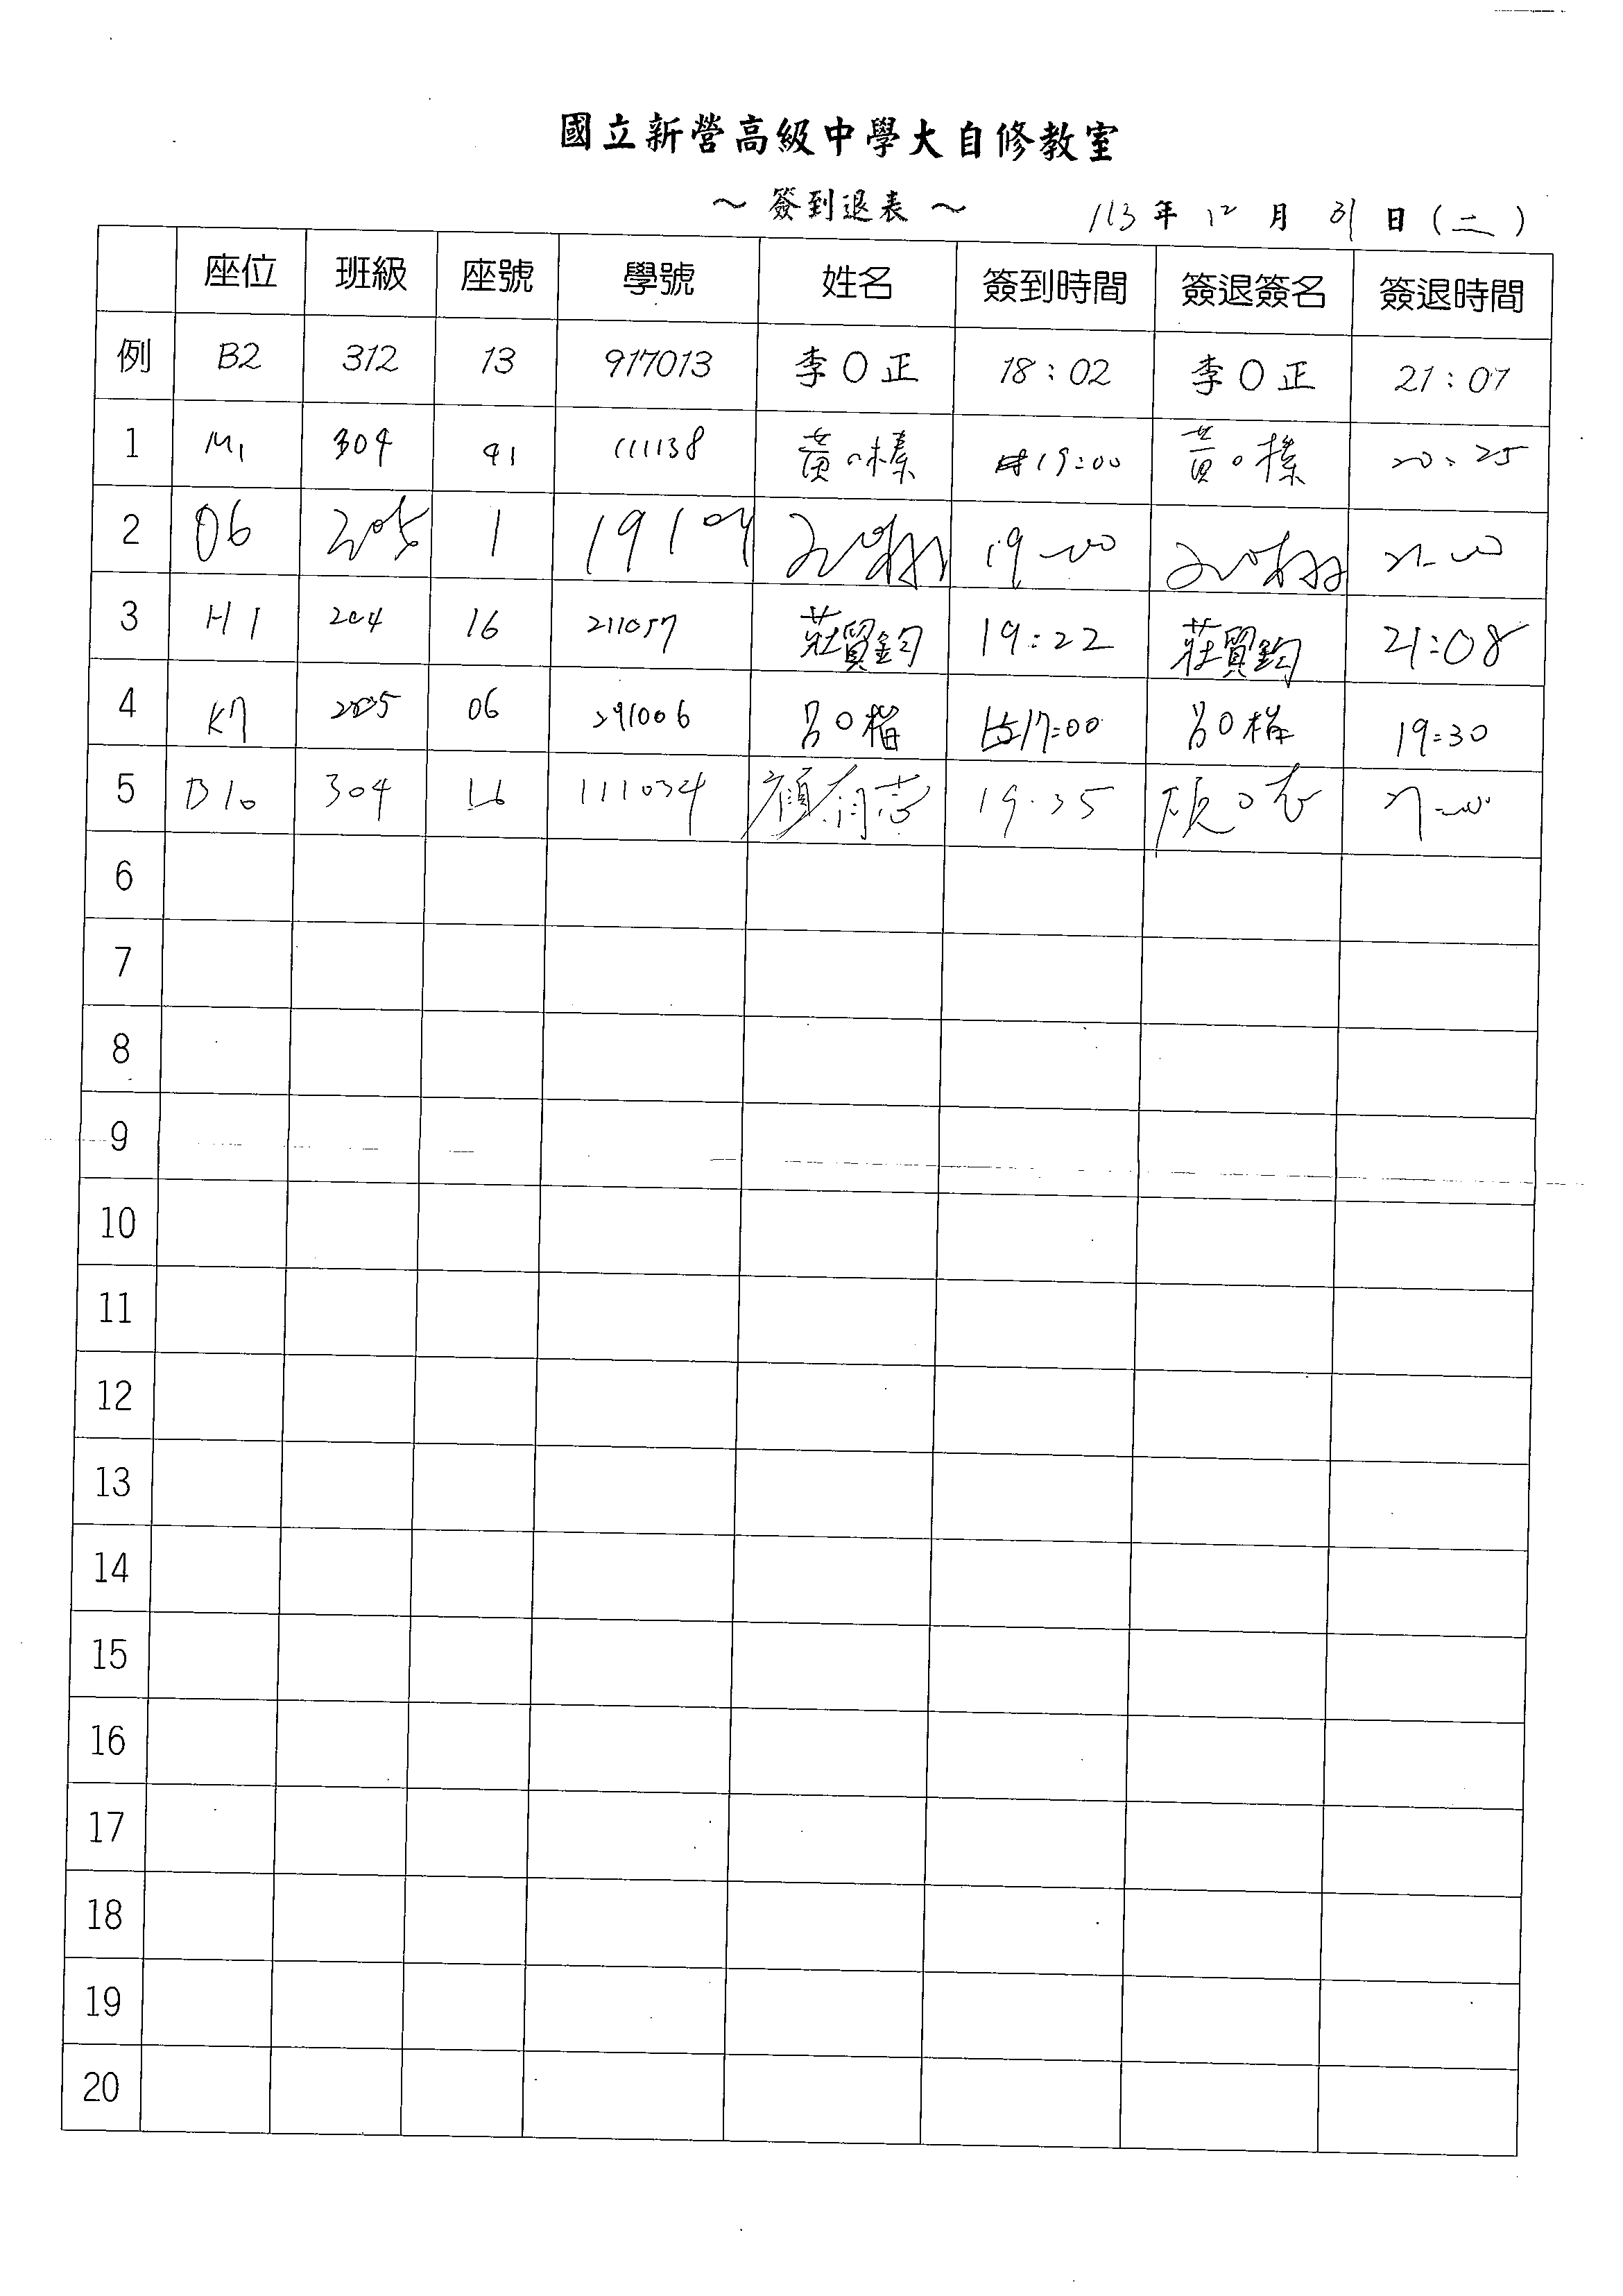 國立新營高級中學大自修教室
～ 簽到退表 ～ 113 年 12 月 31 日 (二)
座位 班級 座號 學號 姓名 簽到時間 簽退簽名 簽退時間
例 B2 312 13 917013 李〇正 18:02 李〇正 21:07
1 M1 304 41 111138 黃〇榛 19:00 黃〇榛 20:25
2 06 205 1
3 H1 204 16 211057 莊貿鈞 19:22 莊貿鈞 21:08
4 K7 205 06 291006 呂〇 17:00 呂〇 19:30
5 B10 304 16 111034 顏 志 19:35
6
7
8
9
10
11
12
13
14
15
16
17
18
19
20